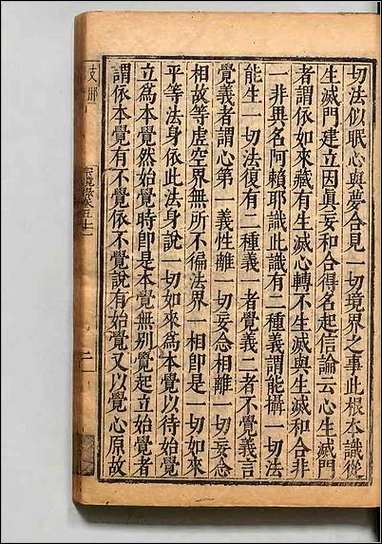 切法似眠心與夢合見一切境界之事此根本識從
生滅門建立因真妄和合得名起信論云心生滅門
者謂依如來藏有生滅心轉不生滅與生滅和合非
一非異名阿賴耶識此識有二種義謂能攝一切法
能生一切法復有二種義一者覺義二者不覺義言
覺義者謂心第一義性離一切妄念相離一切妄念
相故等虛空界無所不徧法界一相即是一切如來
平等法身依此法身說一切如來為本覺以待始覺
立為本覺然始覺時即是本覺無別覺起立始覺者
謂依本覺有不覺依不覺說有始覺又以覺心原故
二